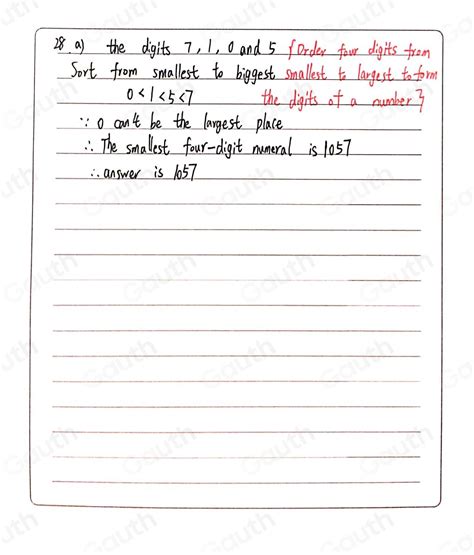 28 a) the digits 7, 1, 0 and 5 {Order four digits from
Sort from smallest to biggest smallest to largest to form
0<1<5<7 the digits of a number}
∵ 0 can't be the largest place
∴ The smallest four-digit numeral is 1057
∴ answer is 1057
Gauth
Gauth
Gauth
Gauth
Gauth
Gauth
Gauth
Gauth